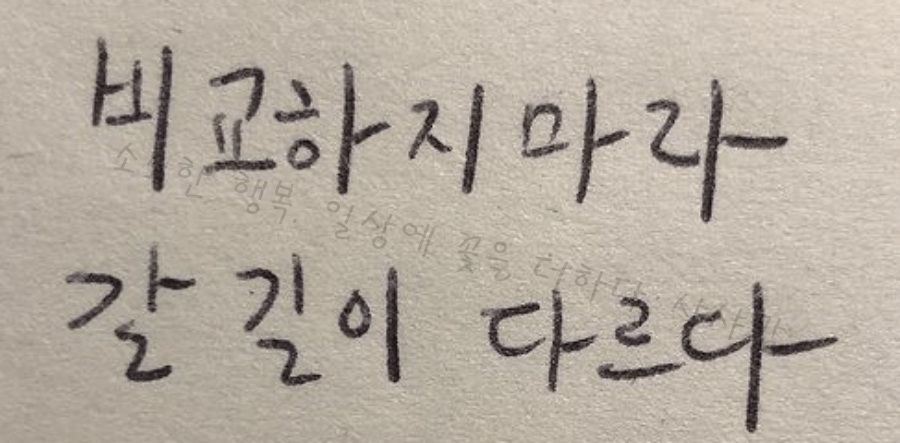 비교하지 마라
갈 길이 다르다
소소한 행복. 일상에 꽃을 더하다.